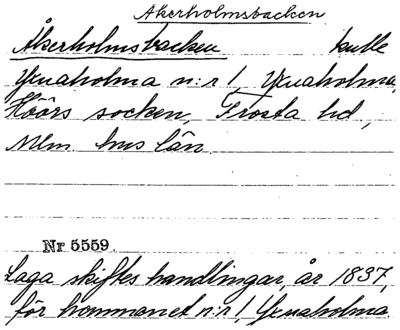 Åkerholmsbacken
Åkerholmsbacken kulle
Ynaholma n:r 1, Ynaholma,
Höörs socken, Frosta hd,
Mlm. hus län.
Nr 5559.
Laga skiftes handlingar, år 1837,
för hemmanet n:r 1 Ynaholma.